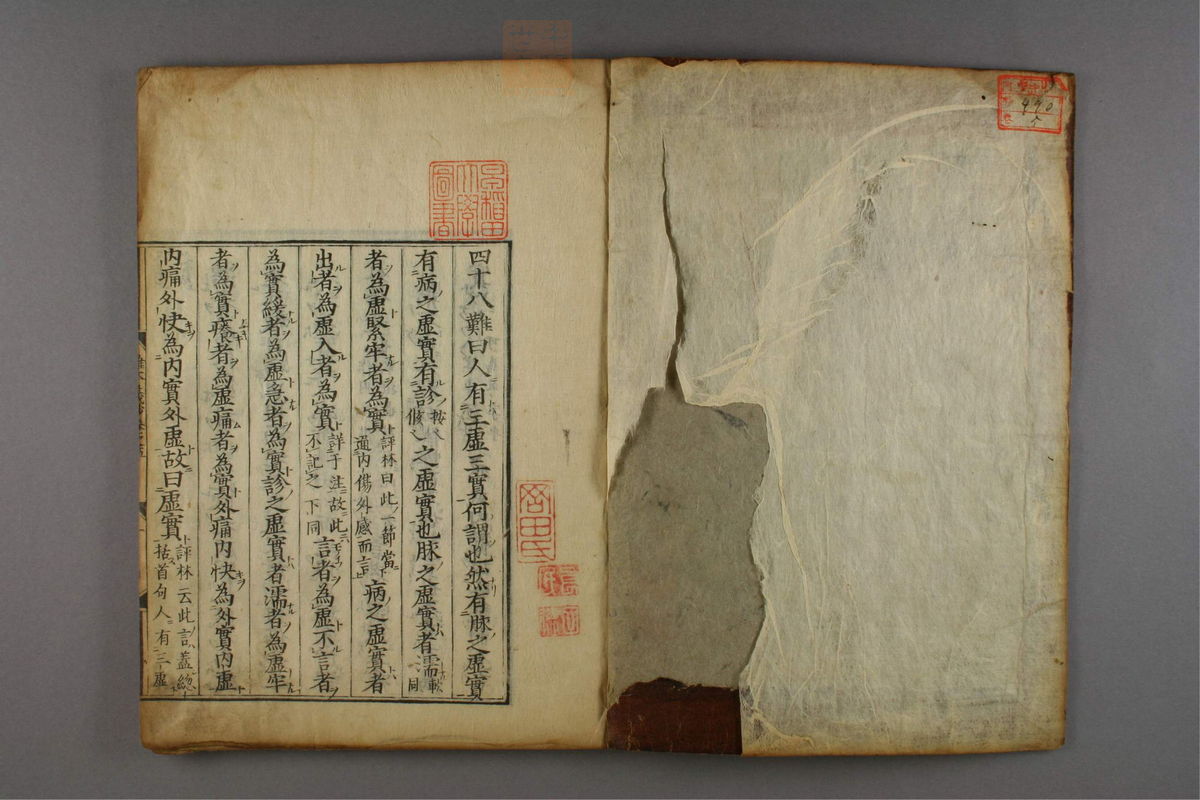 四十八難曰人有三虛三實何謂也然有脉之虛實
有病之虛實有診之虛實也脉之虛實者濡
者為虛緊牢者為實評林曰此一節當通內傷外感而言病之虛實者
出者為虛入者為實詳于注故此不記之下同言者為虛不言者
為實緩者為虛急者為實診之虛實者濡者為虛牢
者為實癢者為虛痛者為實外痛內快為外實內虛
內痛外快為內實外虛故曰虛實評林云此言蓋總括首句人有三虛
早稲田大學圖書
490
5